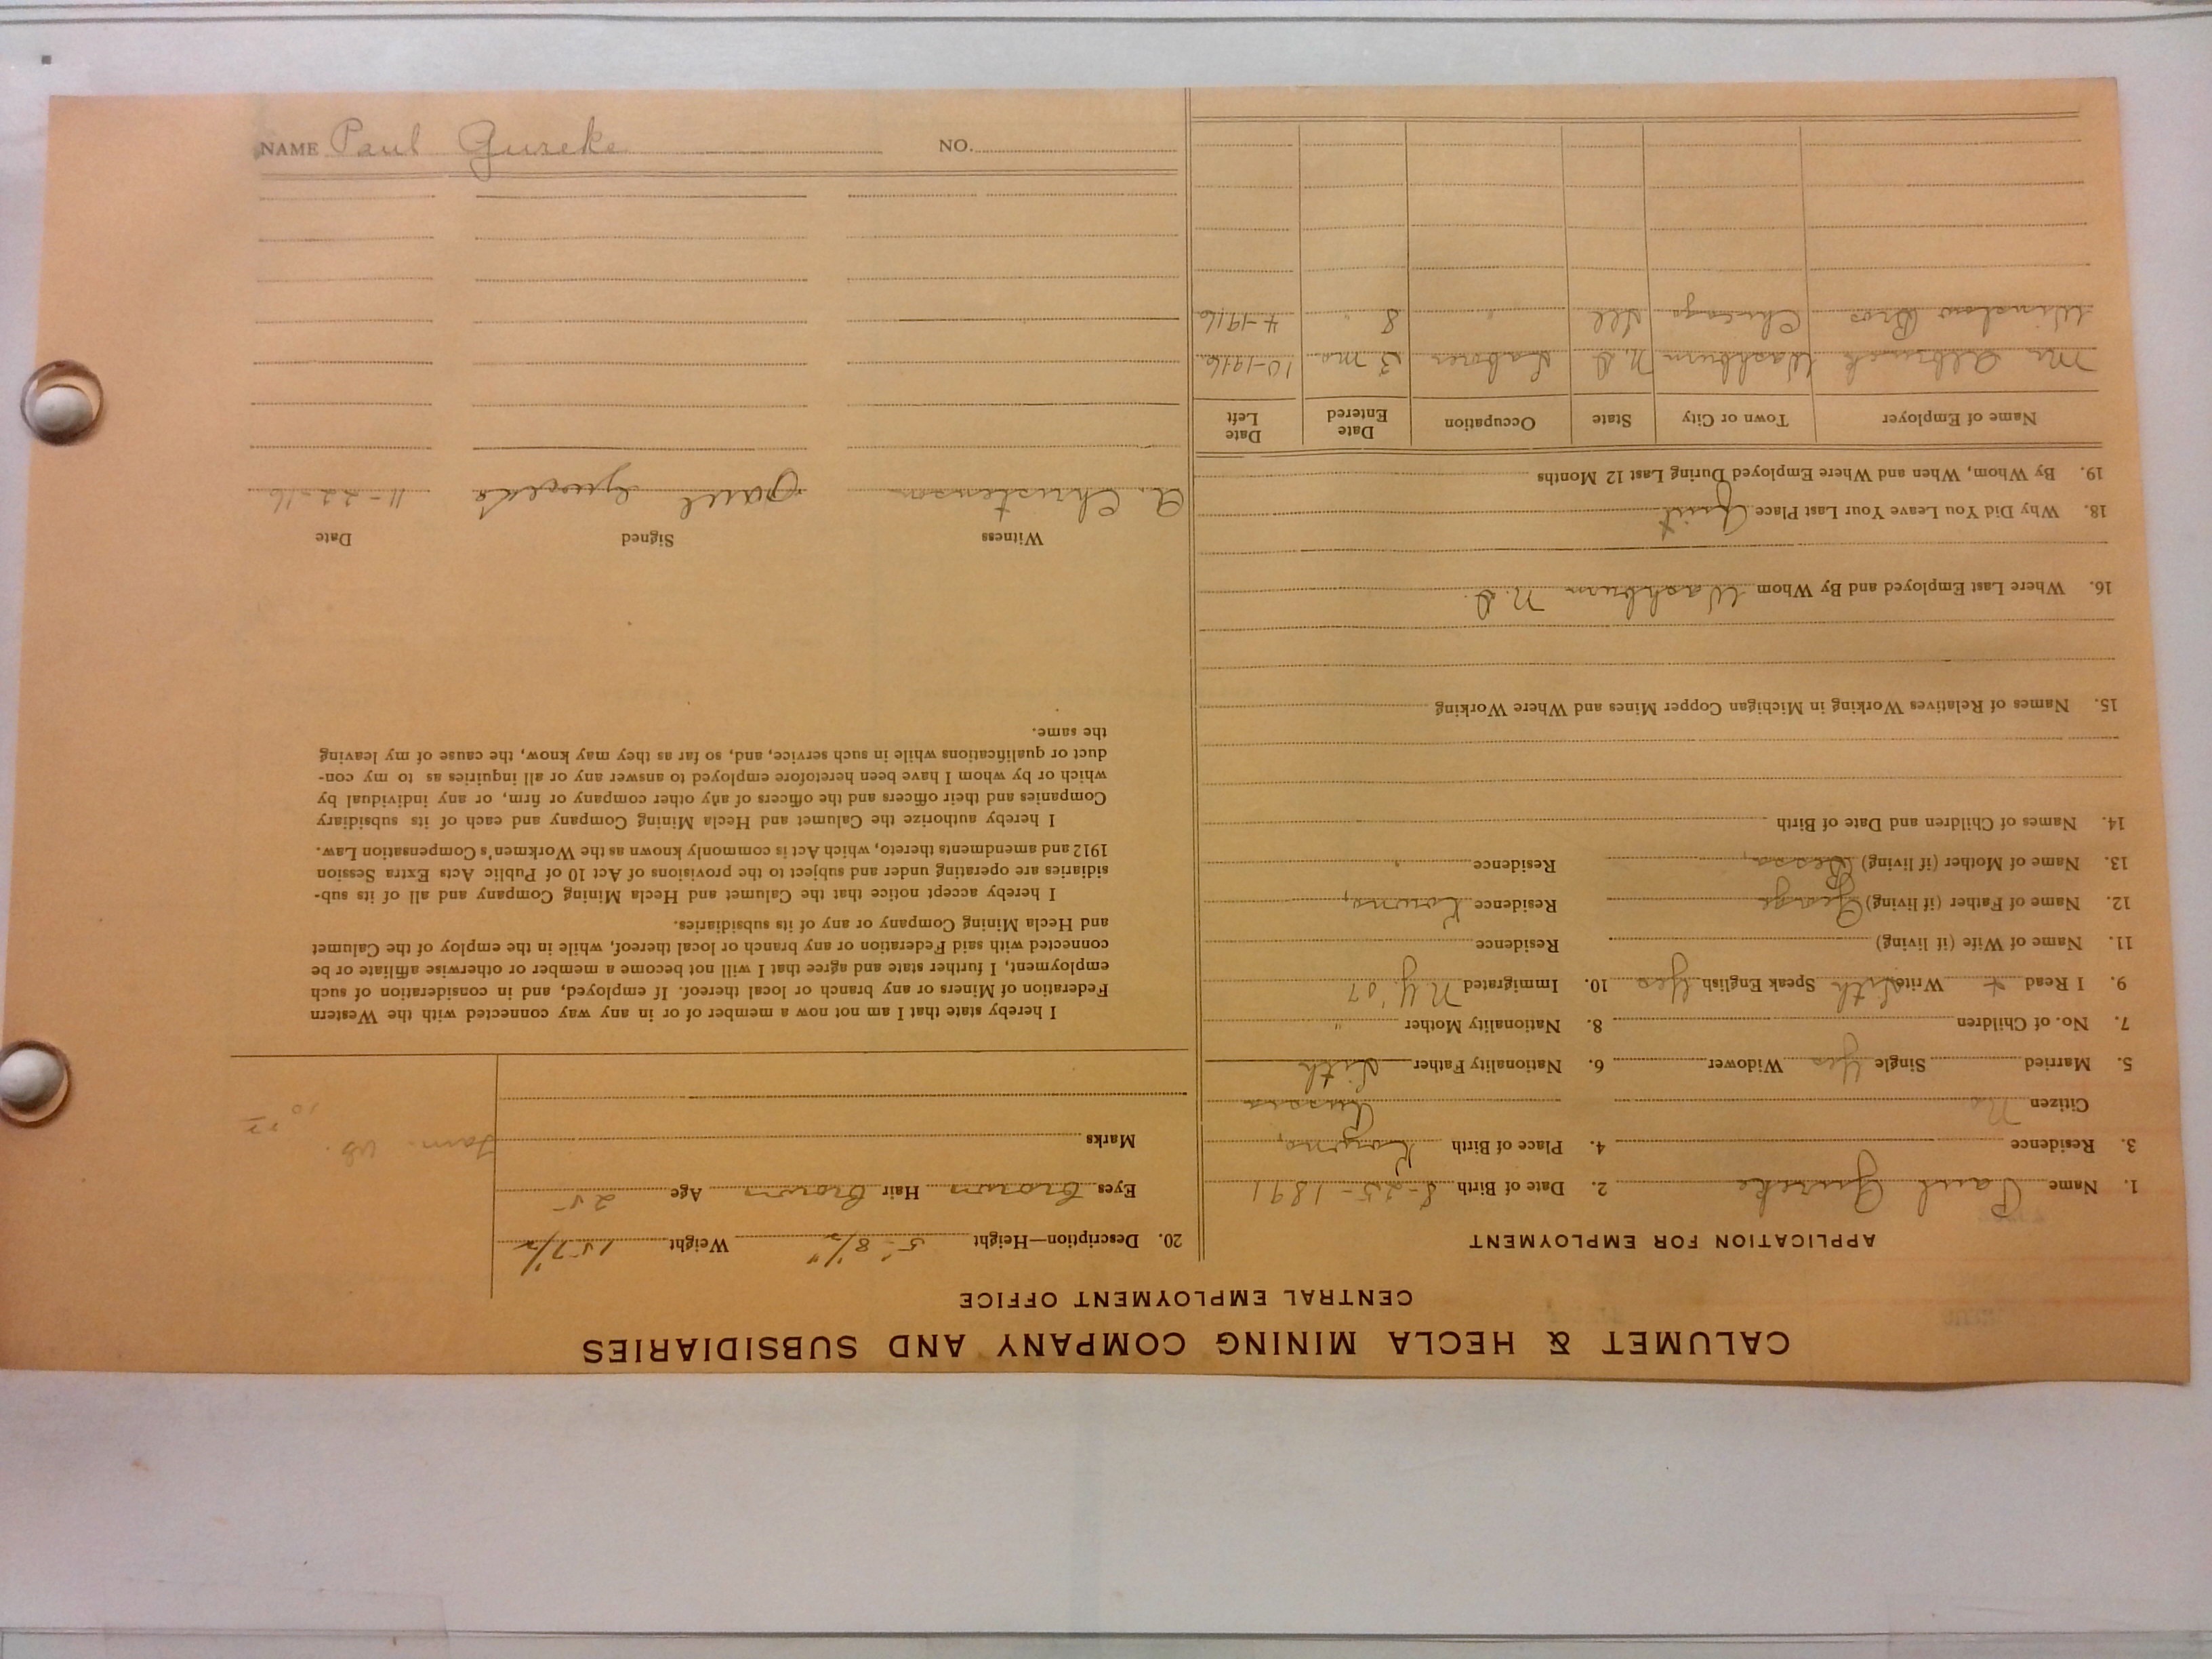 CALUMET & HECLA MINING COMPANY AND SUBSIDIARIES
CENTRAL EMPLOYMENT OFFICE
APPLICATION FOR EMPLOYMENT
1. Name Paul Gureke 2. Date of Birth 8-25-1891
3. Residence 4. Place of Birth
Citizen No Russia
5. Married Single Yes Widower 6. Nationality Father Lith
7. No. of Children 8. Nationality Mother "
9. I Read + Write Lith Speak English Yes 10. Immigrated N.Y. '07
11. Name of Wife (if living) Residence
12. Name of Father (if living) George Residence Kowno,
13. Name of Mother (if living) Residence "
14. Names of Children and Date of Birth
15. Names of Relatives Working in Michigan Copper Mines and Where Working
16. Where Last Employed and By Whom Washburn N.D.
18. Why Did You Leave Your Last Place Quit
19. By Whom, When and Where Employed During Last 12 Months
Name of Employer Town or City State Occupation Date Entered Date Left
Mr Washburn N.D Laborer 3 mo 10-1916
Winslow Bros Chicago Ill " 8 " 4-1916
20. Description—Height 5'-8 1/2" Weight 157 1/2
Eyes Brown Hair Brown Age 25
Marks
I hereby state that I am not now a member of or in any way connected with the Western
Federation of Miners or any branch or local thereof. If employed, and in consideration of such
employment, I further state and agree that I will not become a member or otherwise affiliate or be
connected with said Federation or any branch or local thereof, while in the employ of the Calumet
and Hecla Mining Company or any of its subsidiaries.
I hereby accept notice that the Calumet and Hecla Mining Company and all of its sub-
sidiaries are operating under and subject to the provisions of Act 10 of Public Acts Extra Session
1912 and amendments thereto, which Act is commonly known as the Workmen's Compensation Law.
I hereby authorize the Calumet and Hecla Mining Company and each of its subsidiary
Companies and their officers and the officers of any other company or firm, or any individual by
which or by whom I have been heretofore employed to answer any or all inquiries as to my con-
duct or qualifications while in such service, and, so far as they may know, the cause of my leaving
the same.
Witness Signed Date
A. Christenson Paul 11-22-16
NAME Paul Gureke NO.